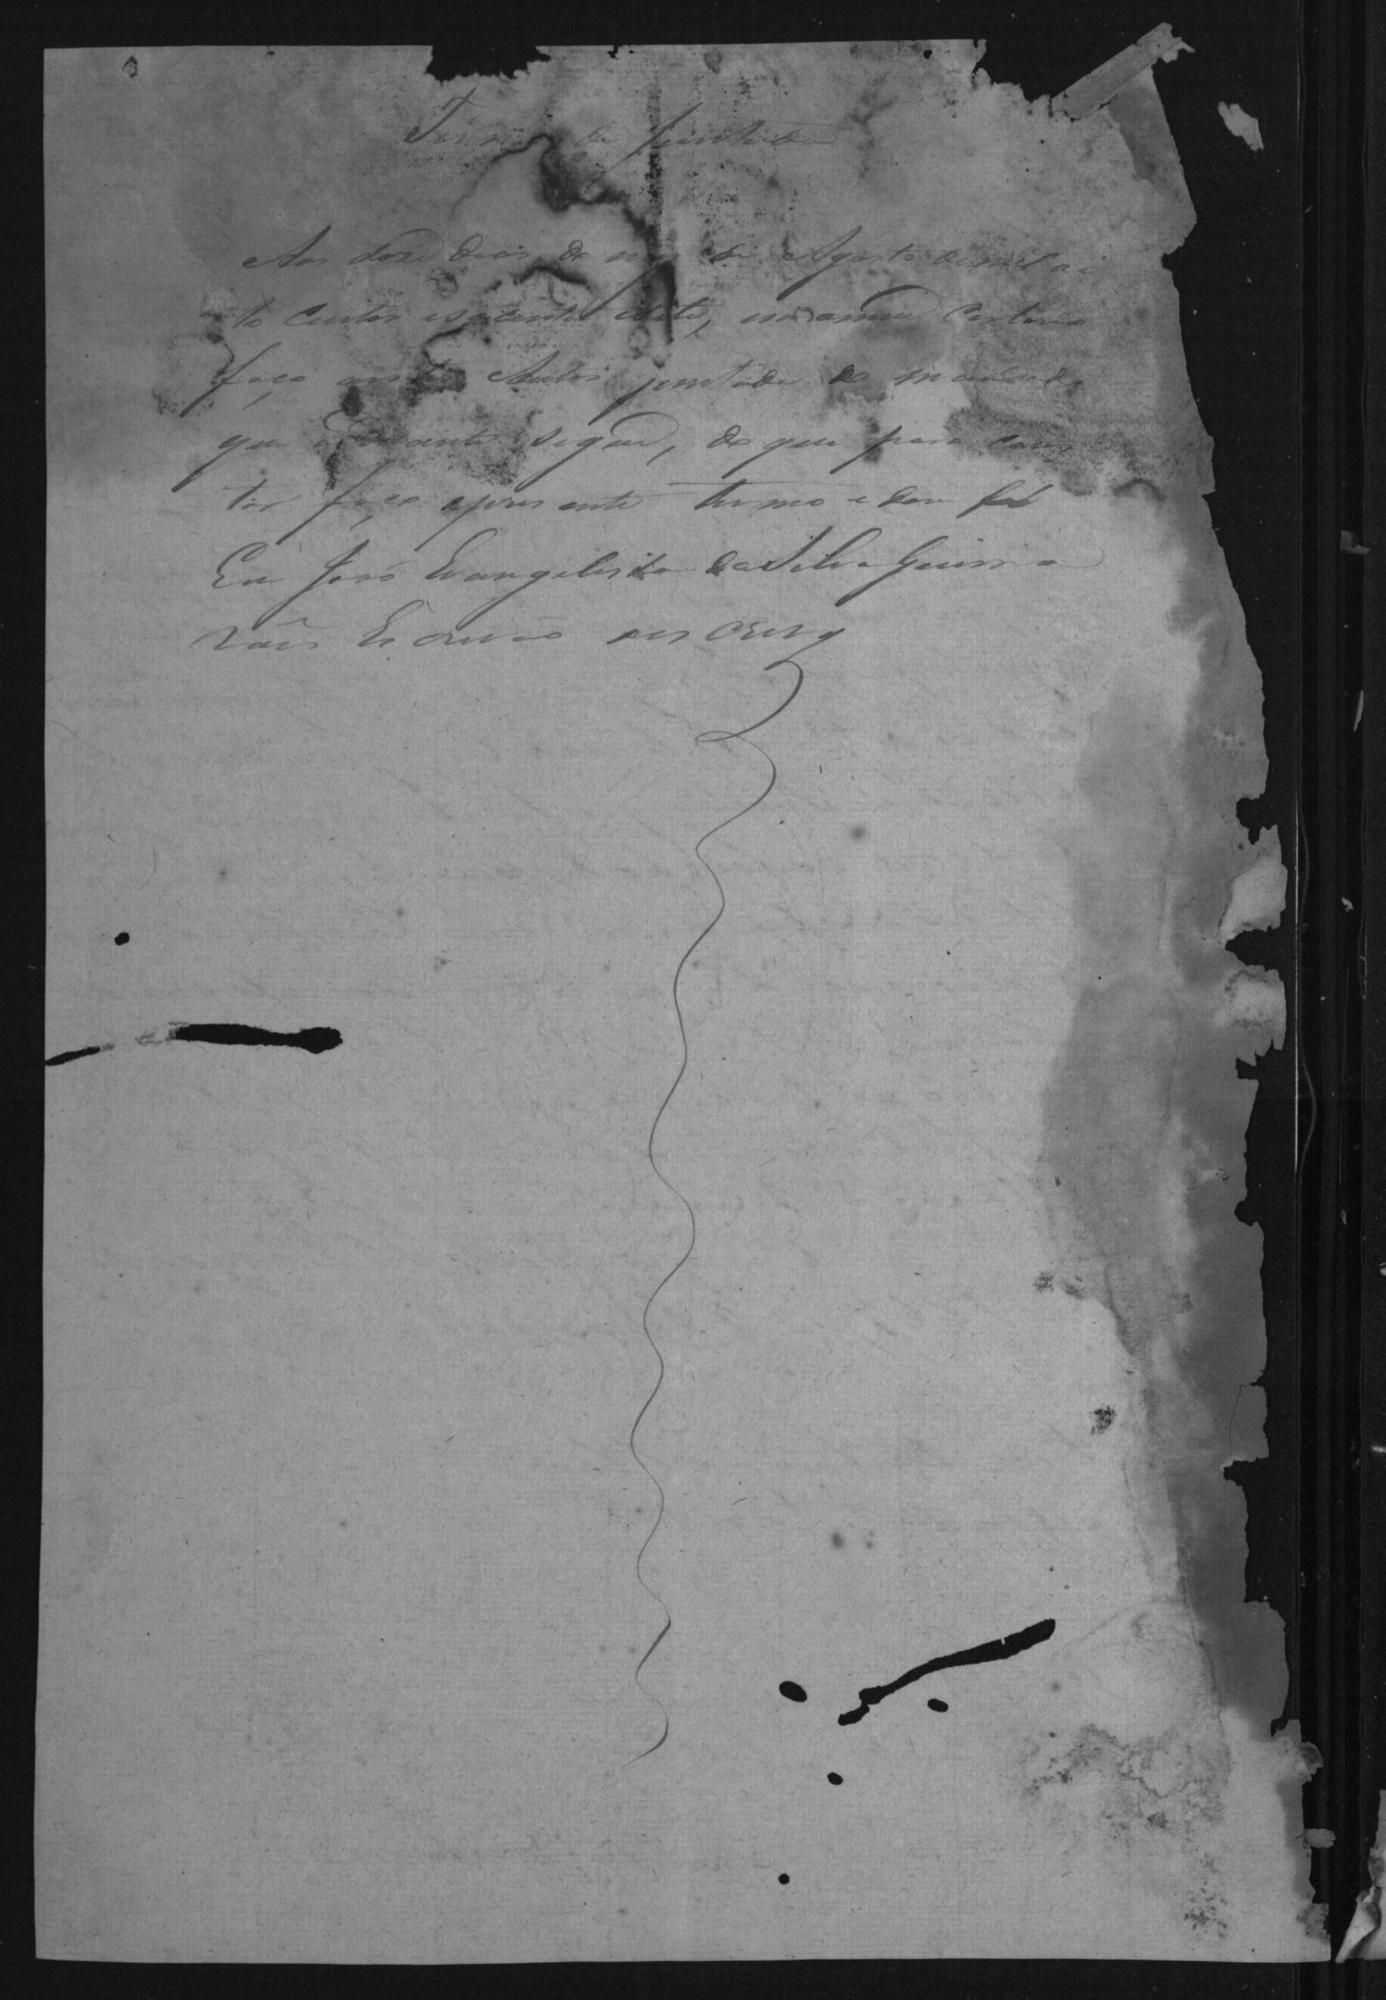 Termo de juntada
Aos doze dias do mez de Agosto de mil oi
to centos esetenta esete, em meu Cartorio
faço nestes Autos juntada do mandado
que adeante segue, do que para cons
tar faço opresente termo e dou fé
Eu José Evangelista da Silva Guima
rães Escrivão o escrevy